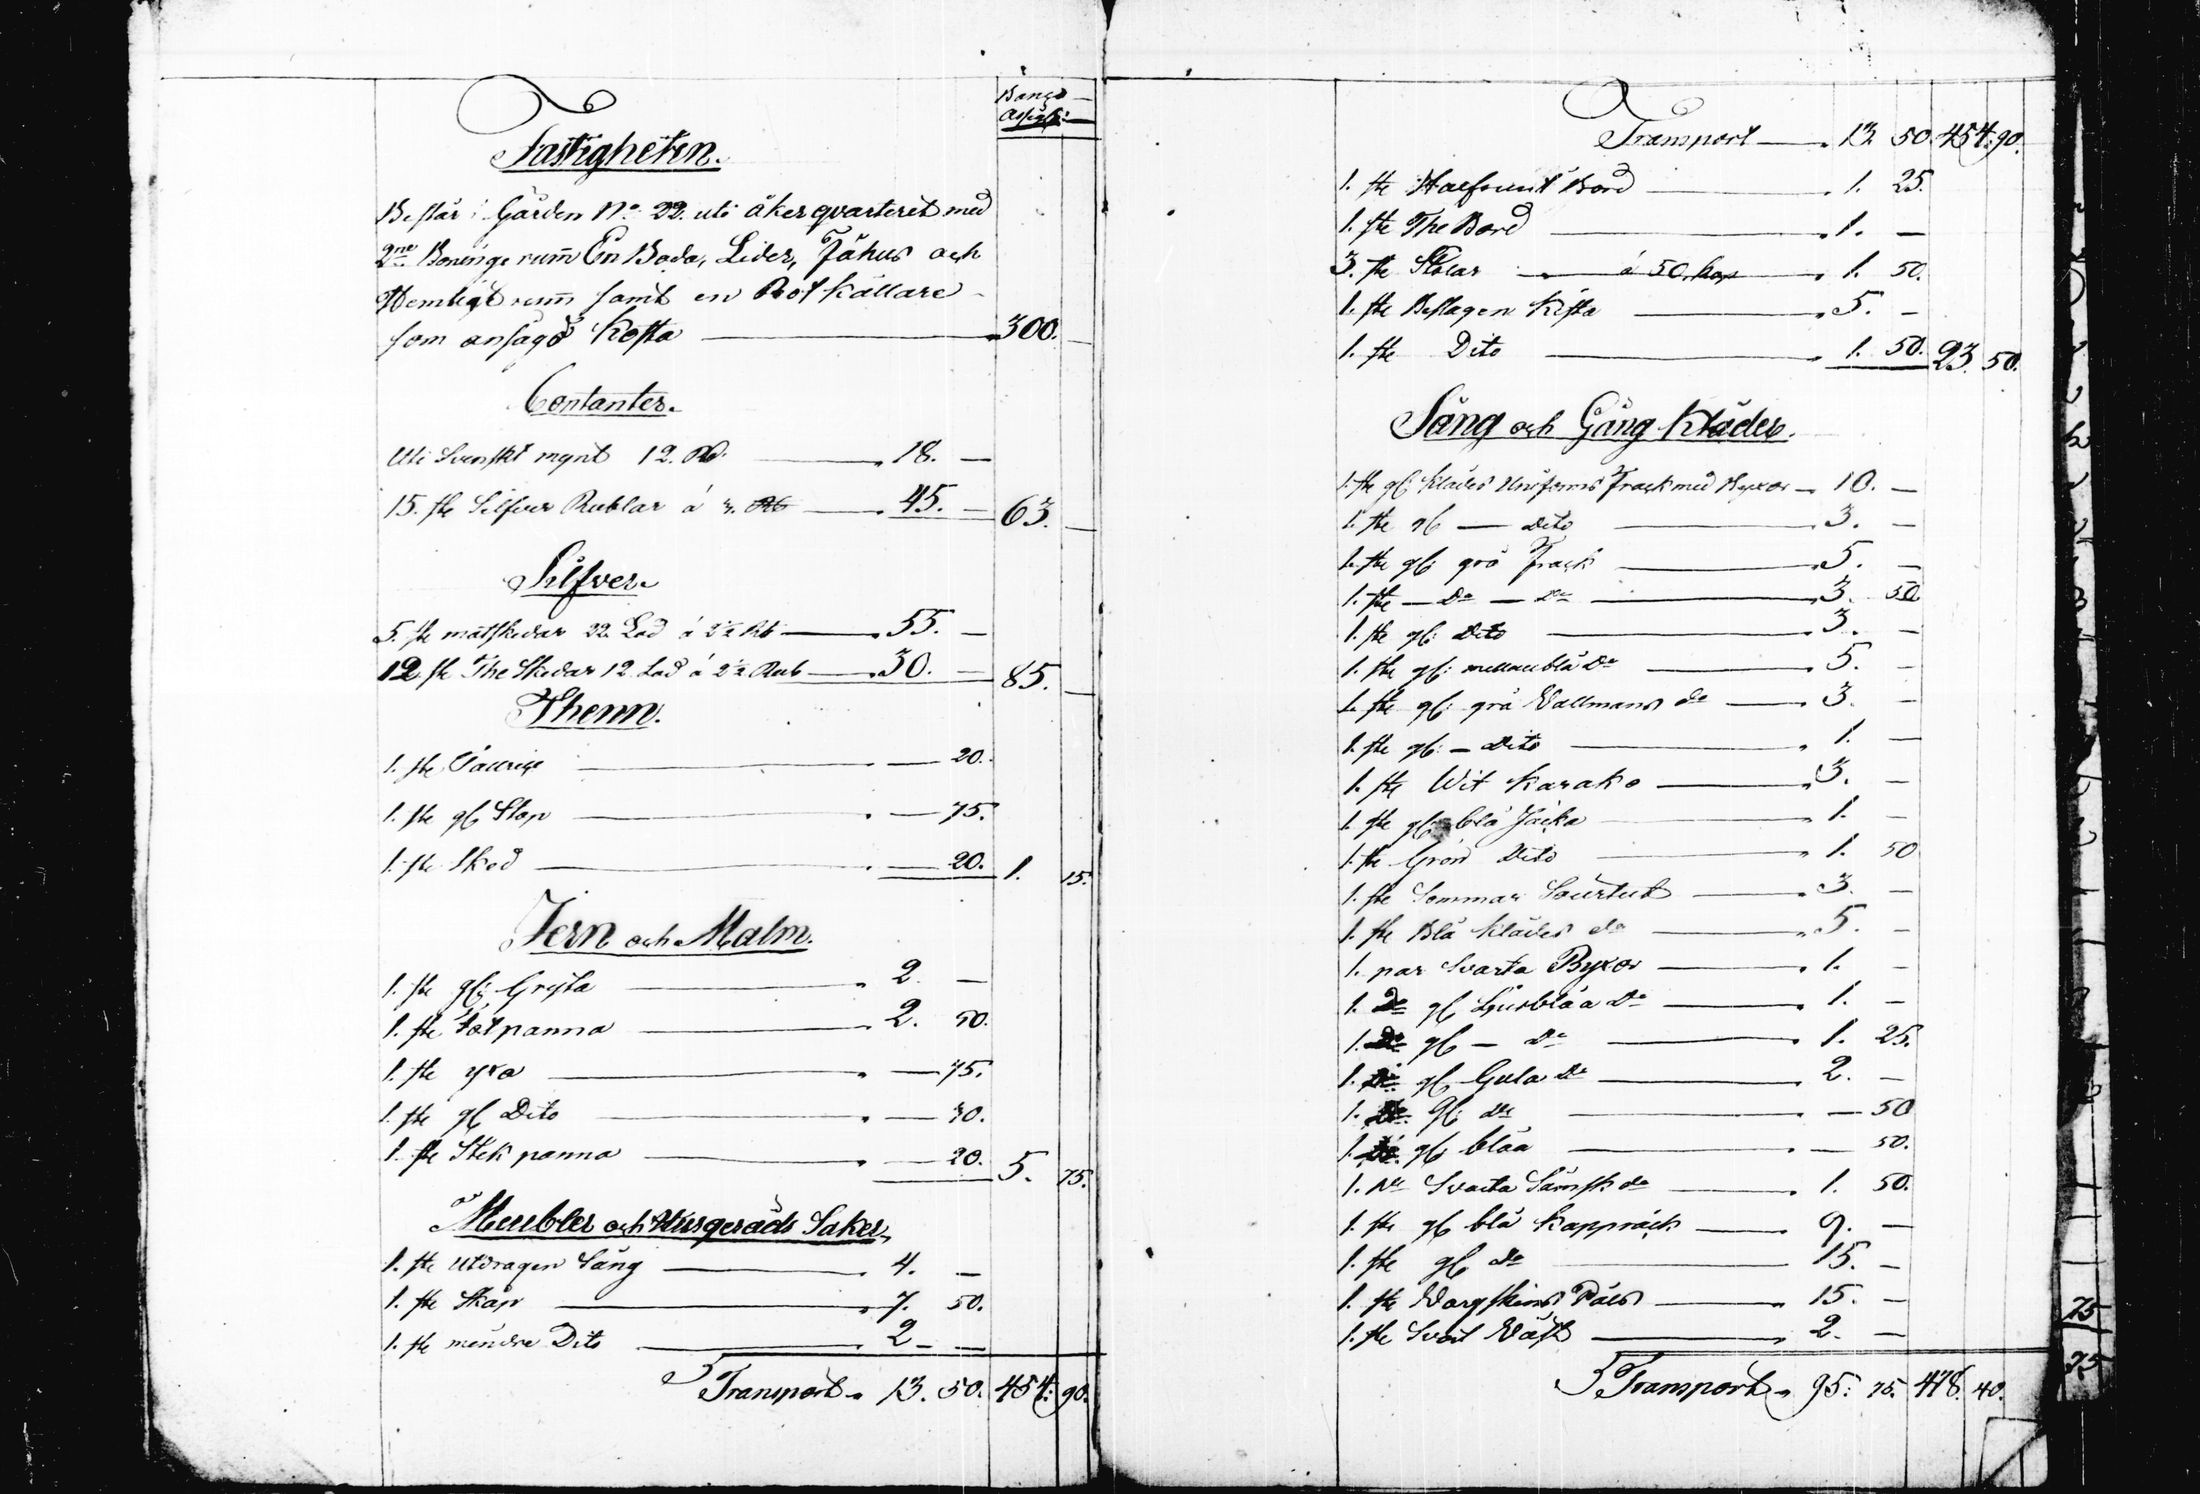 Banco
Assigt:
Fastigheten.
Består i Gården No: 22. uti åker qvarteret med
2ne Bonings rum En Boda, Lider, Fähus och
Hemligt rum samt en Rot källare
som ansågs Kosta 300. —
Contanter.
Uti Svenskt mynt 12. Rd. 18. —
15. st Silfver Rublar á 3. Rb 45. — 63. —
Silfver.
5. st matskedar 22. Lod á 2½ Rb 55. —
12. st The Skedar 12. Lod á 2½ Rub 30. — 85. —
Thenn.
1. st — 20.
1. st gl Stop — 75.
1. st Sked — 20. 1. 15.
Jern och Malm.
1. st gl: Gryta 2. —
1. st panna 2. 50.
1. st yxa — 75.
1. st gl Dito — 30.
1. st Stek panna — 20. 5. 75.
Meubler och Husgeråds Saker.
1. st Utdragen Säng 4. —
1. st Skåp 7. 50.
1. st mindre Dito 2 — —
Transport 13. 50. 454. 90.
Transport 13. 50. 454. 90.
1. st Halfrunt Bord 1. 25.
1. st The Bord 1. —
3. st Stolar á 50. kop 1. 50.
1. st Beslagen Kista 5. —
1. st Dito 1. 50. 23. 50.
Säng och Gång Kläder.
1. st gl: Klädes Uniforms Frack med Byxor 10. —
1. st gl — Dito 3. —
1. st gl: grå Frack 5. —
1. st — Do — Do 3. 50
1. st gl: Dito 3. —
1. st gl: mellanblå Do 5. —
1. st gl: grå Vallmans do 3. —
1. st gl: — Dito 1. —
1. st Wit Karako 3. —
1. st gl: blå Jacka 1. —
1. st Grön Dito 1. 50
1. st Sommar Sourtut 3. —
1. st Blå Klädes do 5. —
1. par Svarta Byxor 1. —
1. Do gl Ljusblåa Do 1. —
1. Do gl — Do 1. 25.
1. Do gl Gula Do 2. —
1. Do gl: do — 50
1. Do gl blåa — 50.
1. Do Svarta Sämsk do 1. 50.
1. st gl blå Kapprack 9. —
1. st gl do 15. —
1. st Vargskins Päls 15. —
1. st Svart Väst 2. —
Transport 95: 75. 478. 40.
75
75